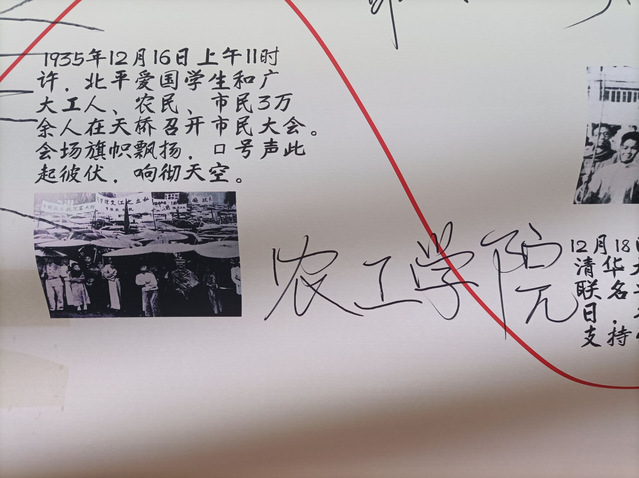 1935年12月16日上午11时
许，北平爱国学生和广
大工人、农民、市民3万
余人在天桥召开市民大会。
会场旗帜飘扬，口号声此
起彼伏，响彻天空。
农工学院
12月18日
清华
联名
日，
支持